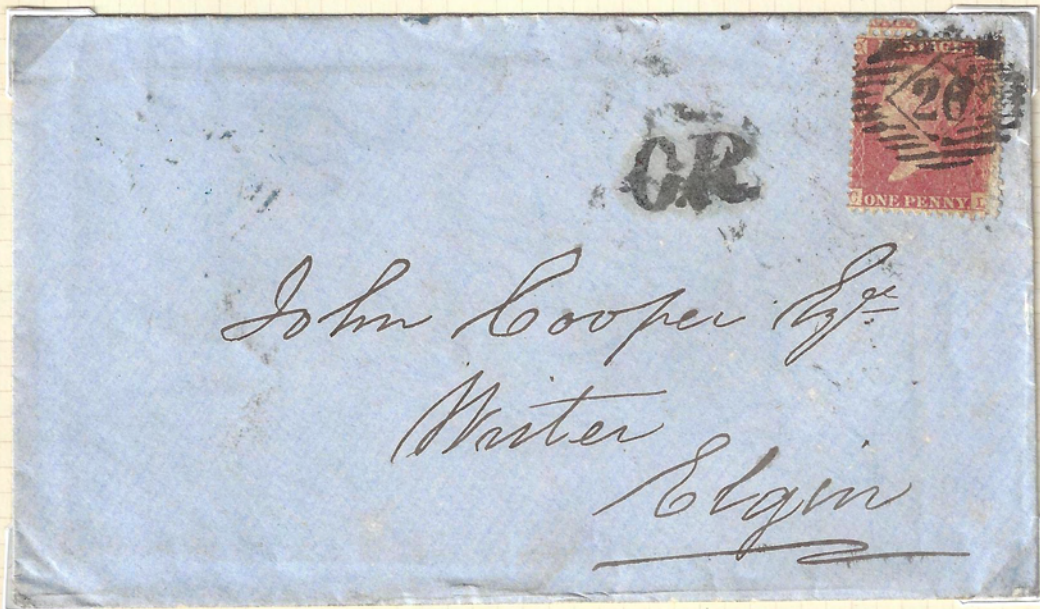 POSTAGE
26
C.R.
G ONE PENNY I
John Cooper Esqre
Writer
Elgin